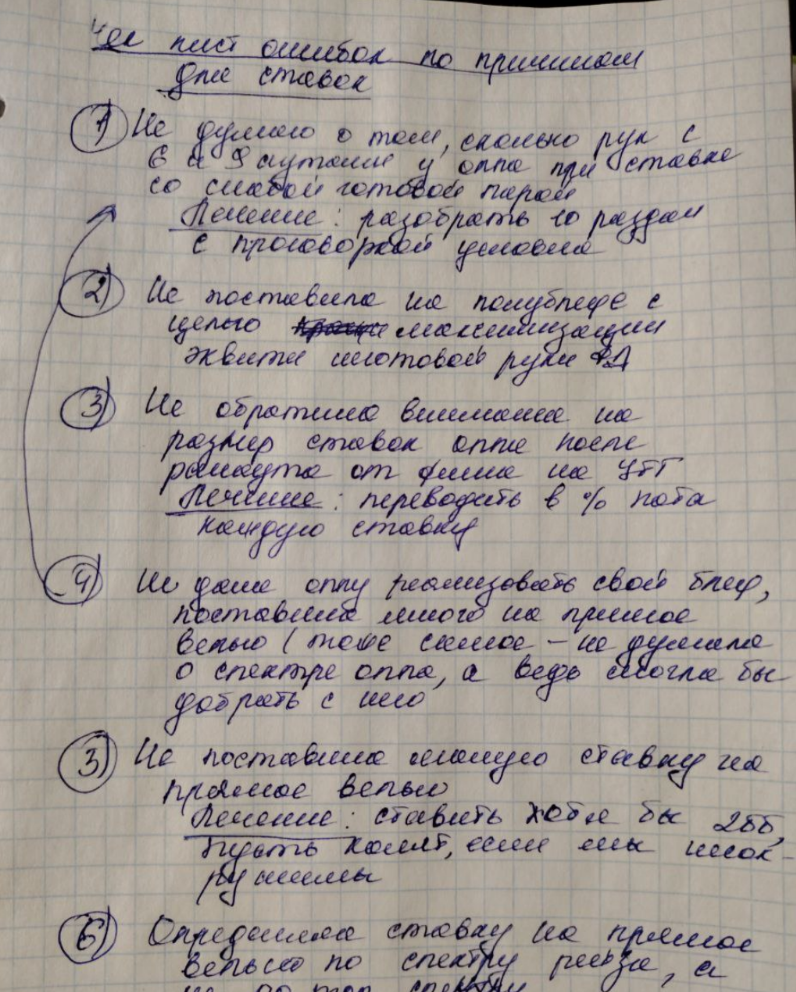 Чек лист ошибок по причинам
для ставок
1) Не думаю о том, сколько рук с
6 и 9 аутами у оппа при ставке
со слабой готовой парой
Лечение: разобрать 10 раздач
с проговоркой условия
2) Не поставила на полублефе с
целью максимизации
эквити неготовой руки
3) Не обратила внимания на
размер ставок оппа после
от фиша на УТГ
Лечение: переводить в % пота
каждую ставку
4) Не дала оппу реализовать свой блеф,
поставила много на прямое
велью (тоже самое - не думала
о спектре оппа, а ведь могла бы
добрать с него
3) Не поставила тонкую ставку на
прямое велью
Лечение: ставить хотя бы 2ББ,
пусть колят, если мы
6) Определила ставку на прямое
велью по спектру рейза, а